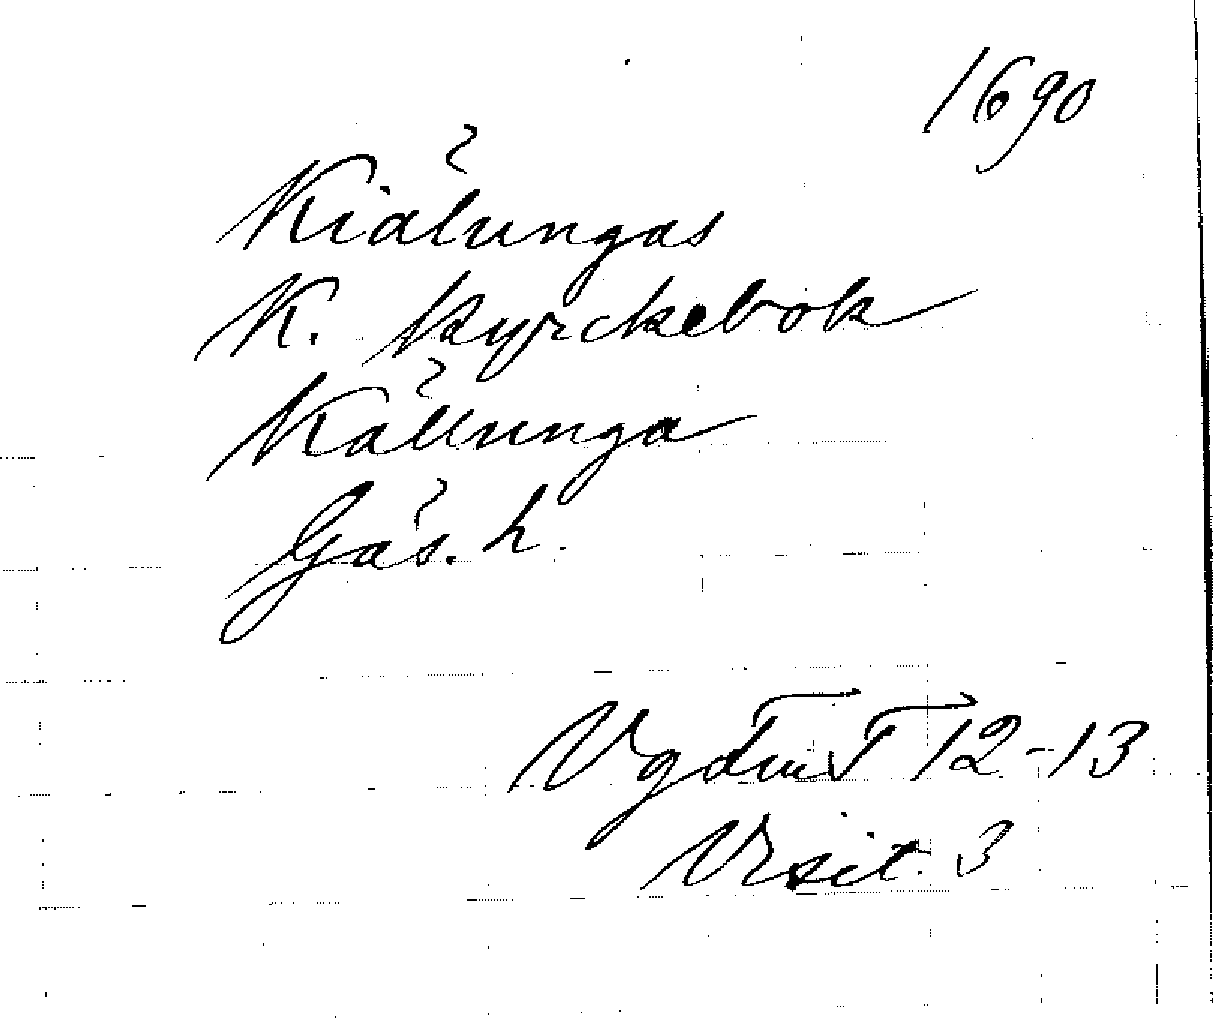 1690
Kiälungas
K. kyrckebok
Källunga
Gäs. h.
VgdmFT 12-13
Visit. 3